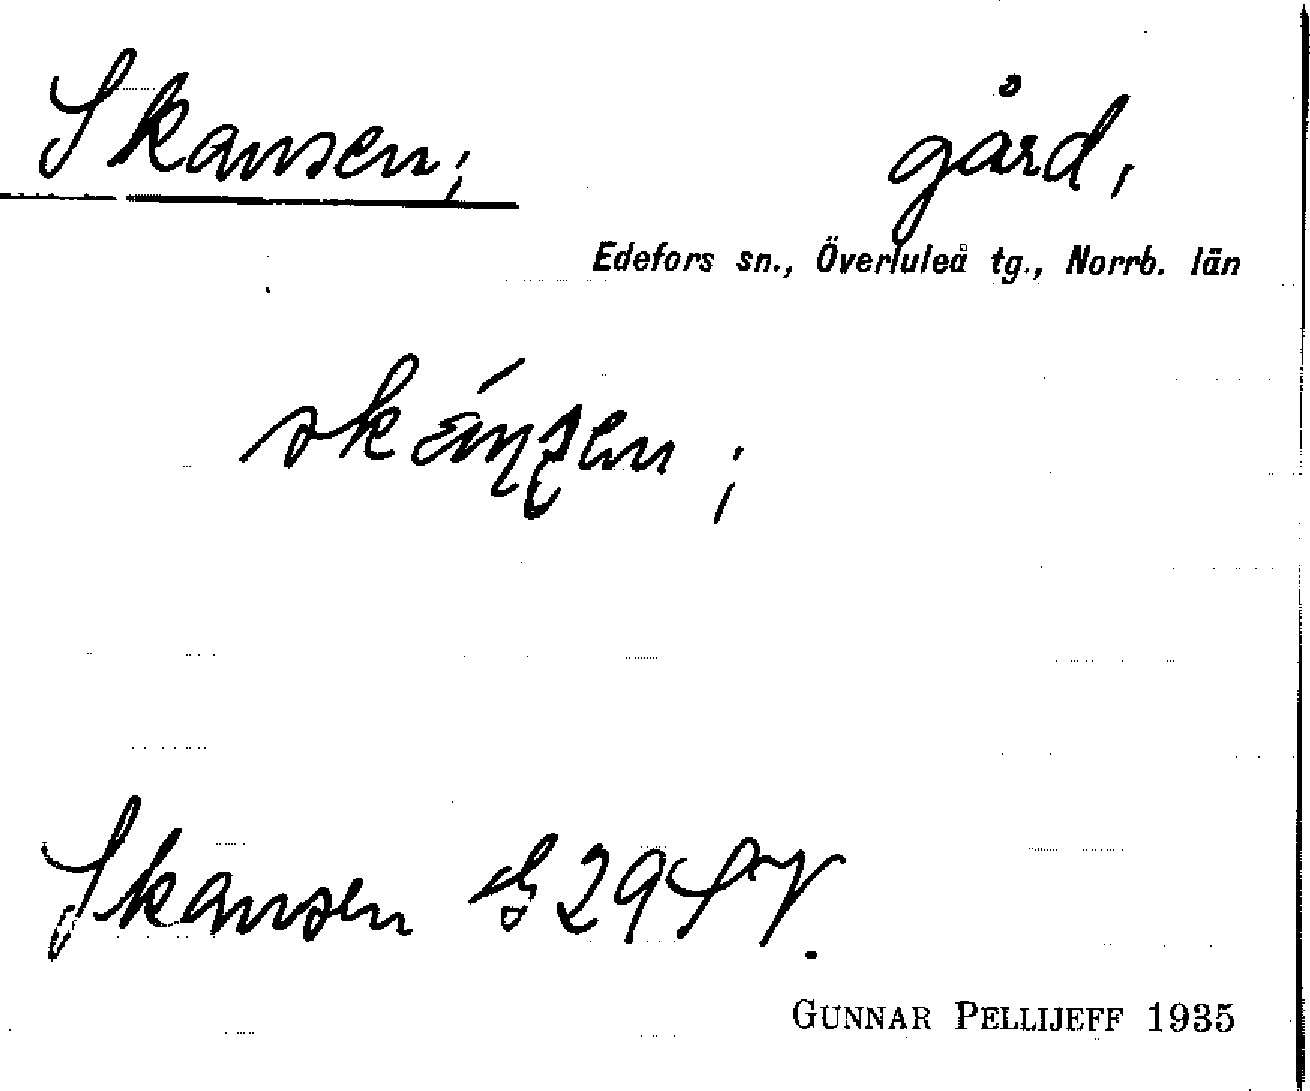 Skansen; gård,
Edefors sn., Överluleå tg., Norrb. län
Skansen 29 SV.
GUNNAR PELLIJEFF 1935